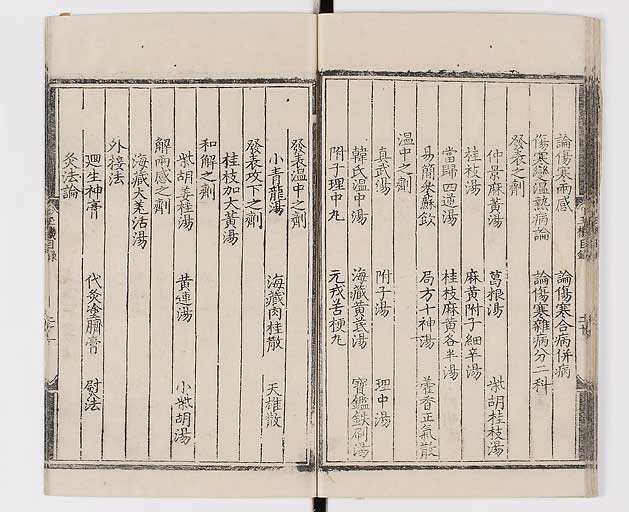 論傷寒兩感 論傷寒合病併病
傷寒變温熱病論 論傷寒雜病分二科
發表之劑
仲景麻黃湯 葛根湯 柴胡桂枝湯
桂枝湯 麻黃附子細辛湯
當歸四逆湯 桂枝麻黃各半湯
易簡參蘇飲 局方十神湯 藿香正氣散
温中之劑
真武湯 附子湯 理中湯
韓氏温中湯 海藏黃芪湯 寶鑑鉄刷湯
附子理中丸 元戎苦梗丸
發表温中之劑
小青龍湯 海藏肉桂散 天雄散
發表攻下之劑
桂枝加大黃湯
和解之劑
柴胡姜桂湯 黃連湯 小柴胡湯
解兩感之劑
海藏大羌活湯
外接法
廻生神膏 代灸塗臍膏 熨法
灸法論